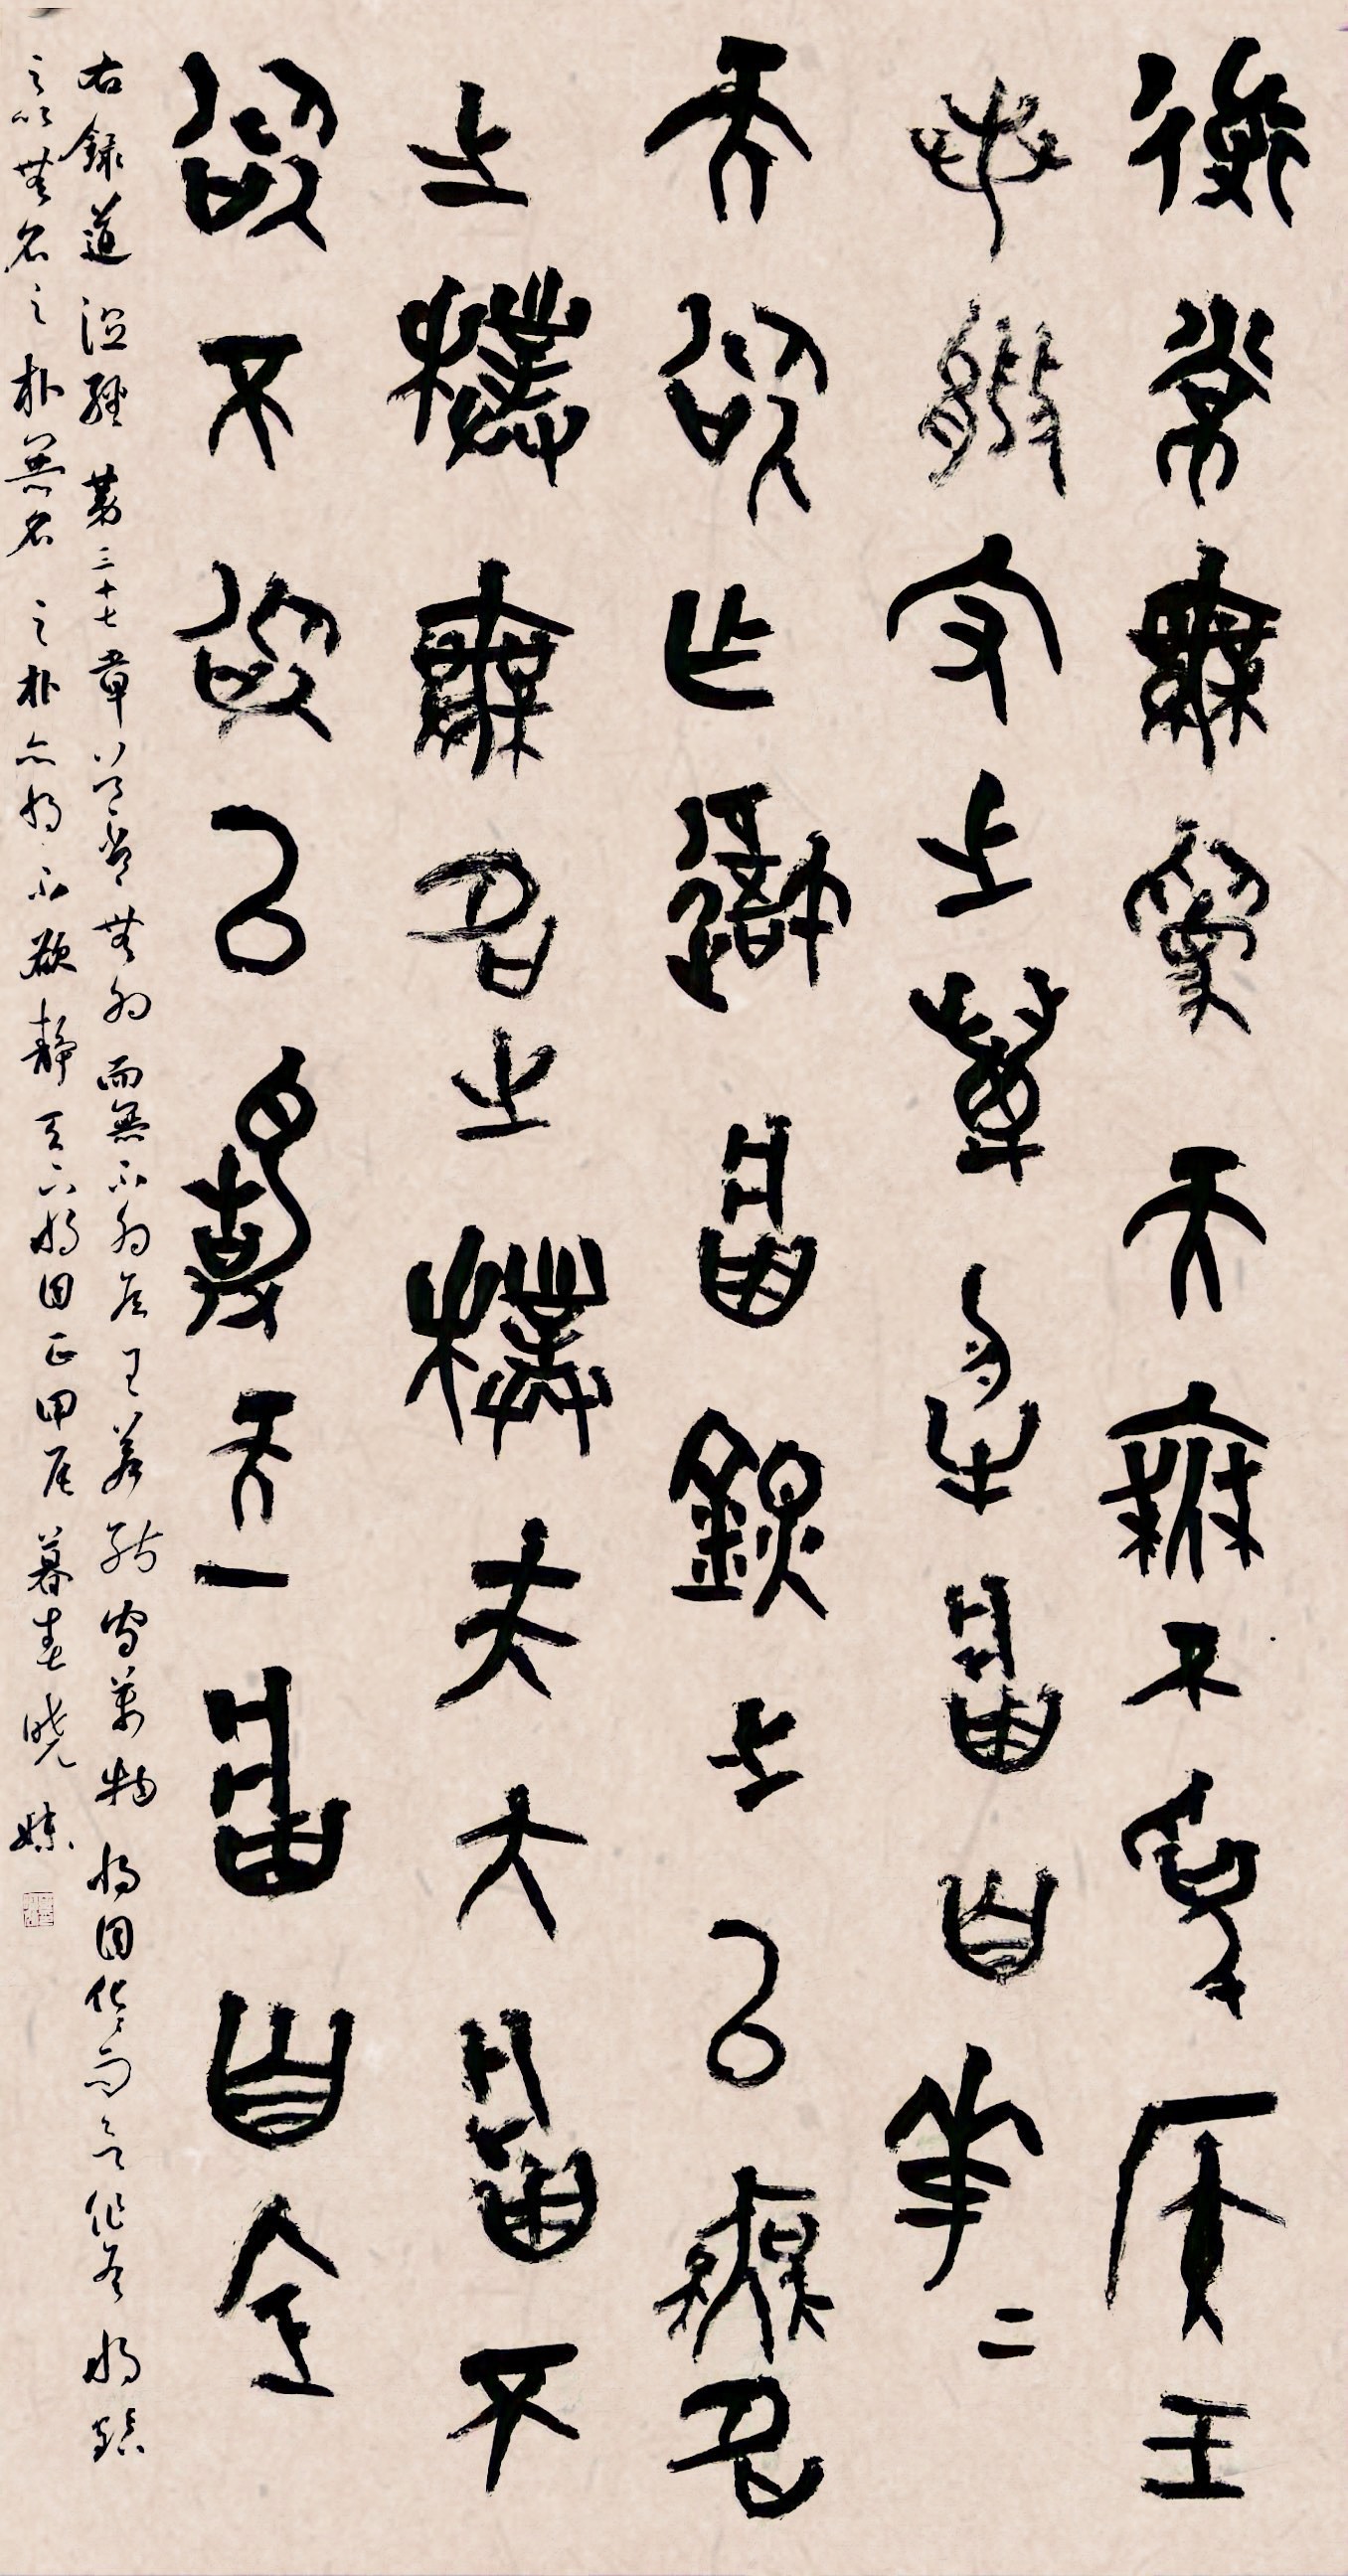 道常無爲而無不爲侯王
若能守之萬物將自化二
而欲作吾將鎮之以無名
之樸無名之樸夫亦將不
欲不欲以靜天下將自定
右録道德經第三十七章道常無为而無不为侯王若能守萬物将自化而欲作吾将鎮
之以無名之朴無名之朴亦将不欲静天下将自正甲辰暮春曉妹